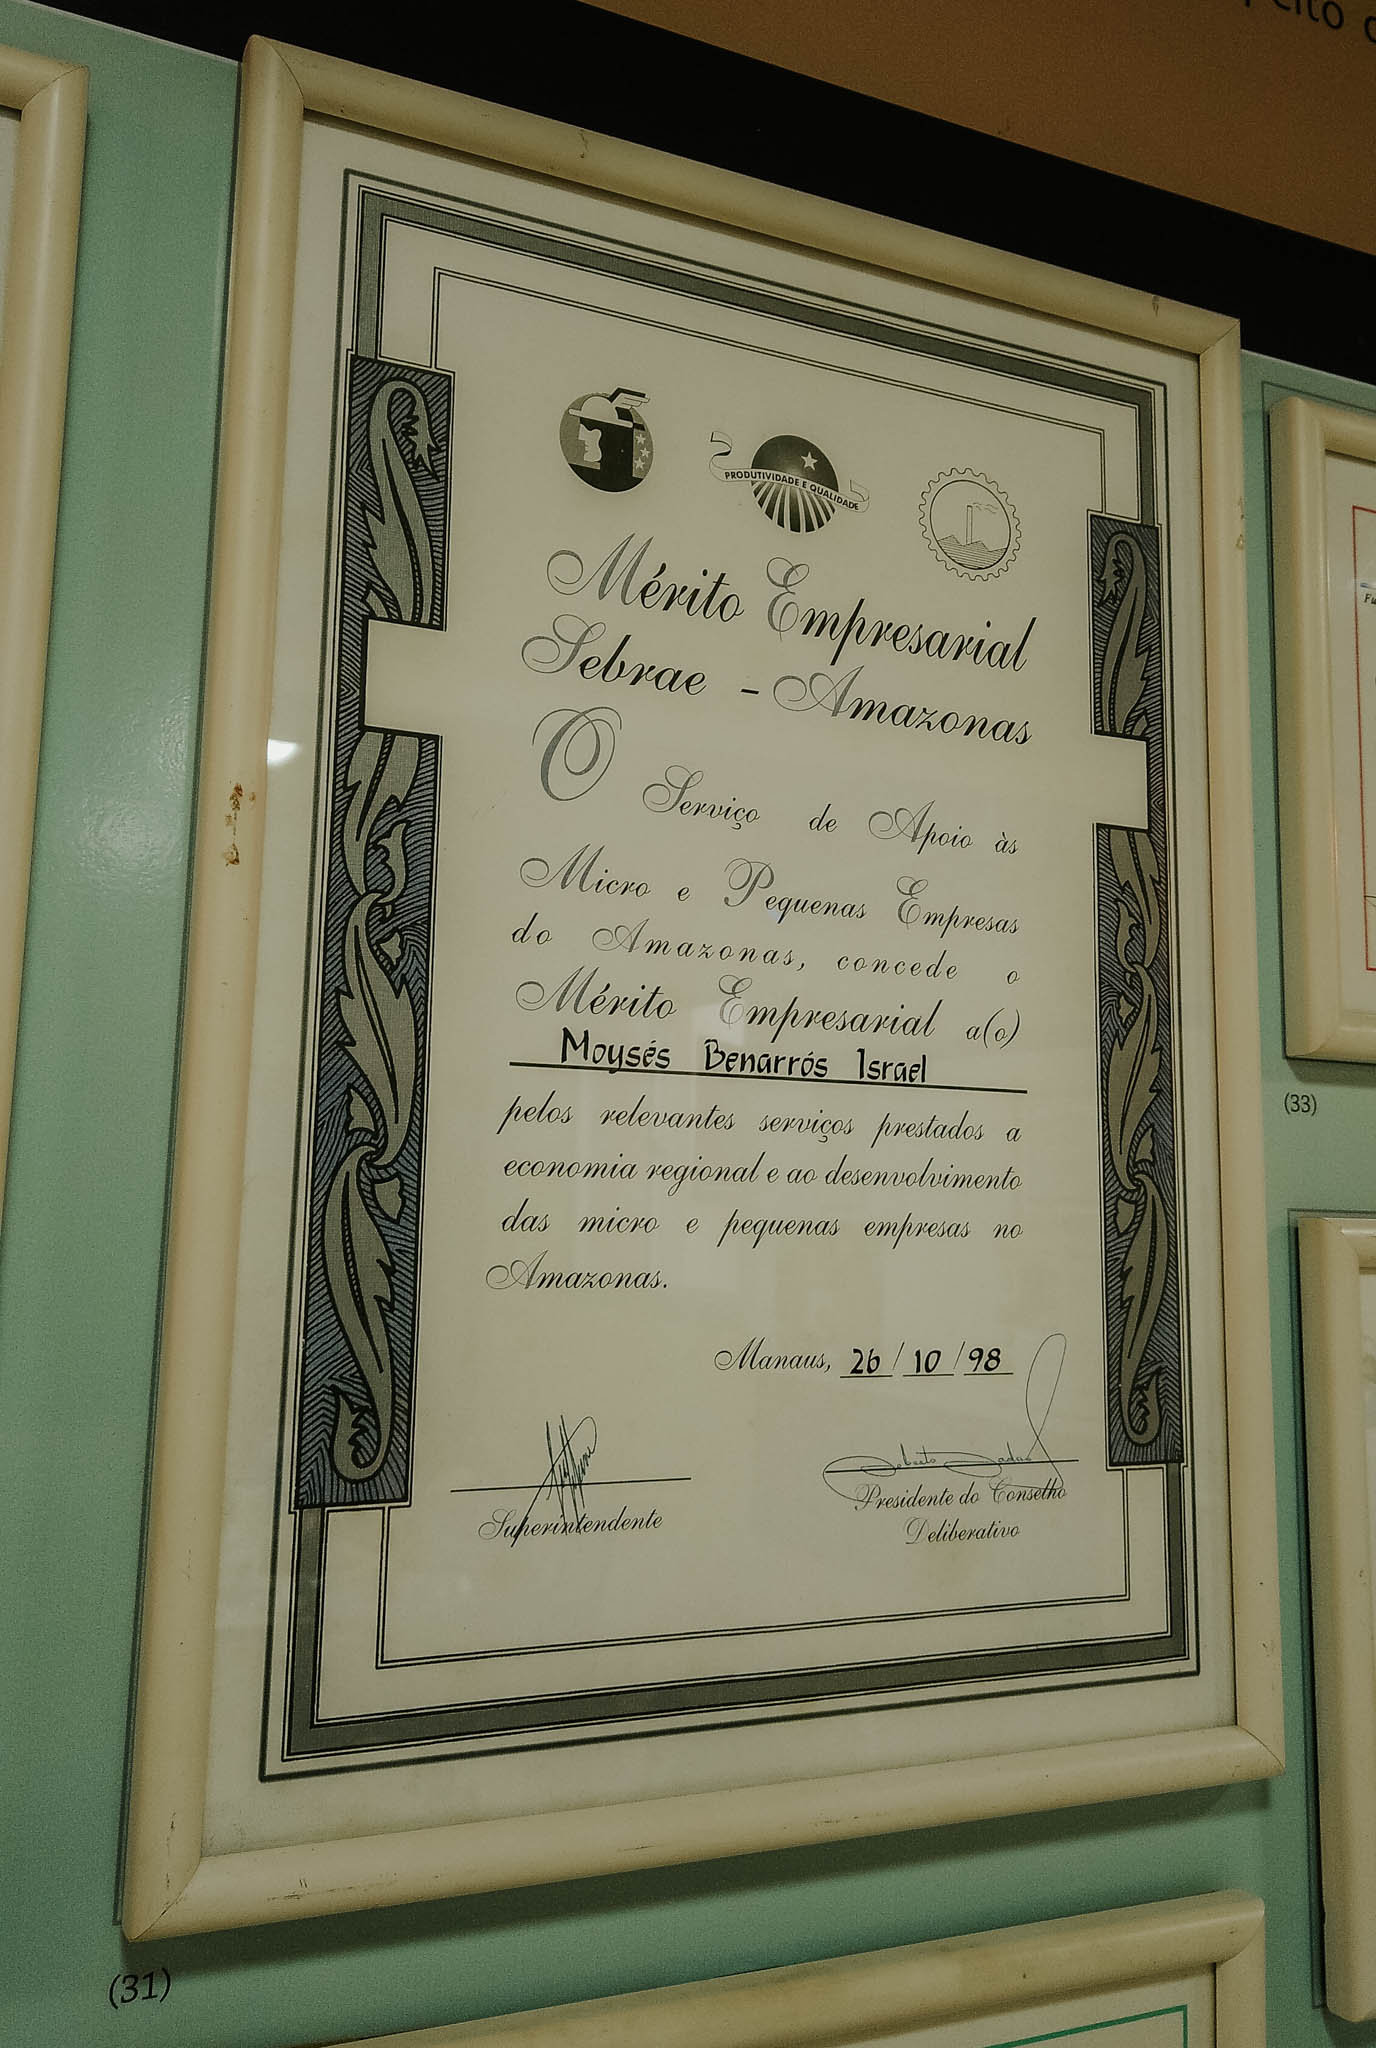 PRODUTIVIDADE E QUALIDADE
Mérito Empresarial
Sebrae - Amazonas
O Serviço de Apoio às
Micro e Pequenas Empresas
do Amazonas, concede o
Mérito Empresarial a(o)
Moysés Benarrós Israel
pelos relevantes serviços prestados a
economia regional e ao desenvolvimento
das micro e pequenas empresas no
Amazonas.
Manaus, 26 / 10 / 98
Superintendente
Presidente do Conselho
Deliberativo
(31)
(33)